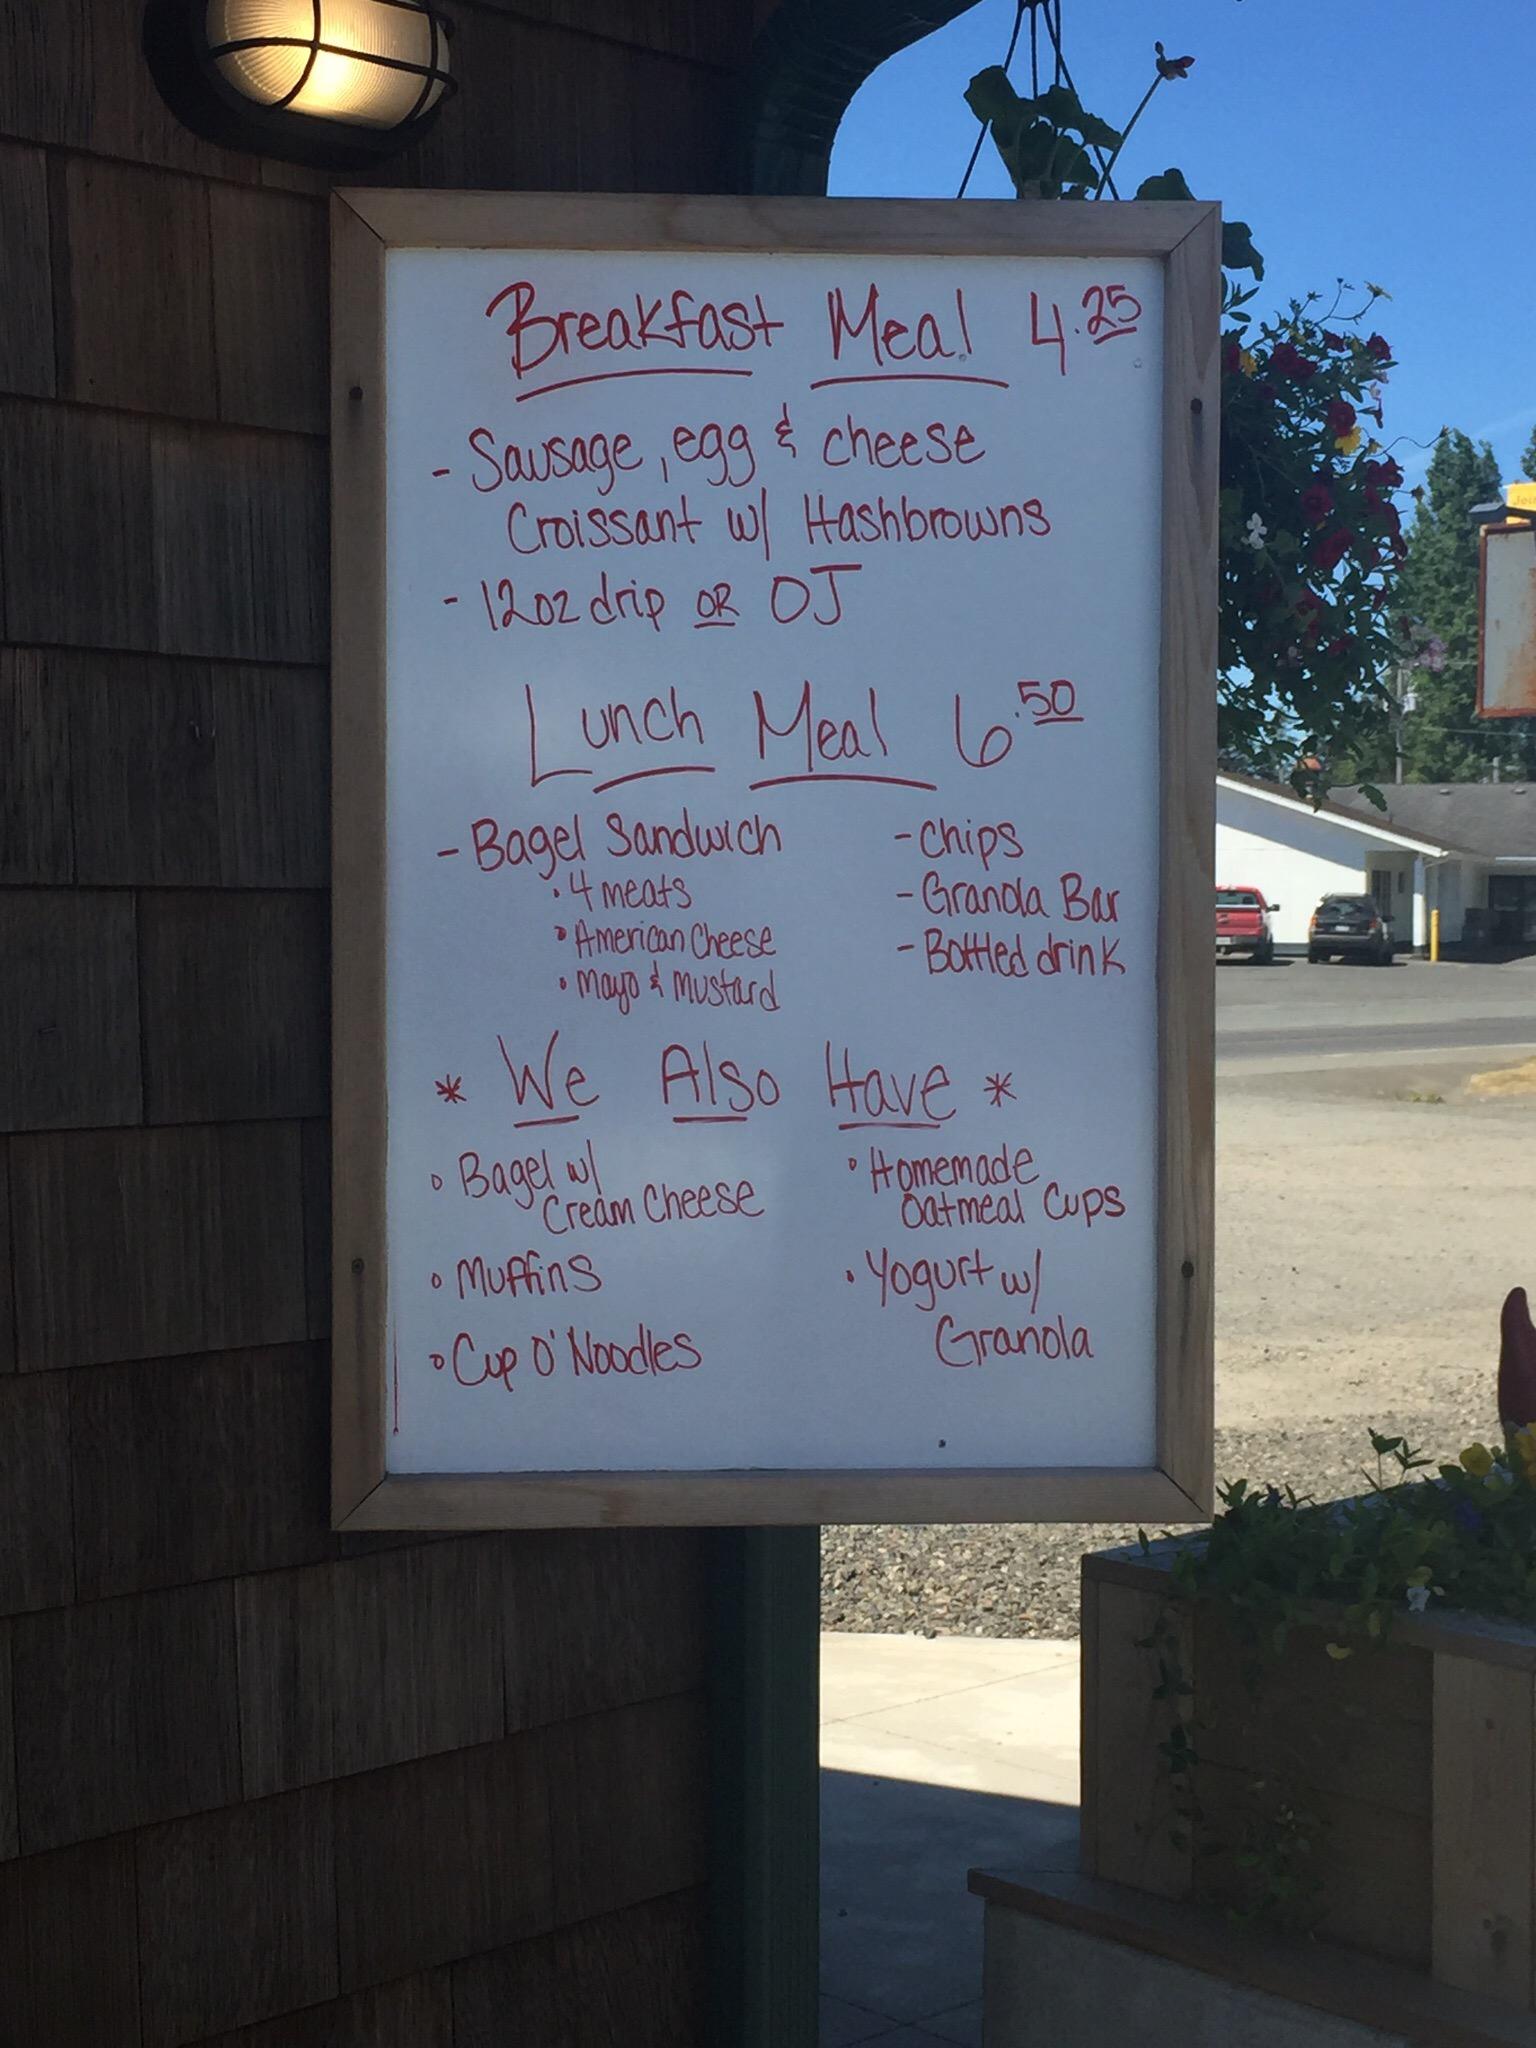 Breakfast Meal 4.25
- Sausage, egg & cheese
Croissant w/ Hashbrowns
- 12oz drip OR OJ
Lunch Meal 6.50
- Bagel Sandwich
• 4 meats
• American Cheese
• Mayo & Mustard
- Chips
- Granola Bar
- Bottled drink
* We Also Have *
• Bagel w/
Cream Cheese
• Muffins
• Cup O' Noodles
• Homemade
Oatmeal Cups
• Yogurt w/
Granola